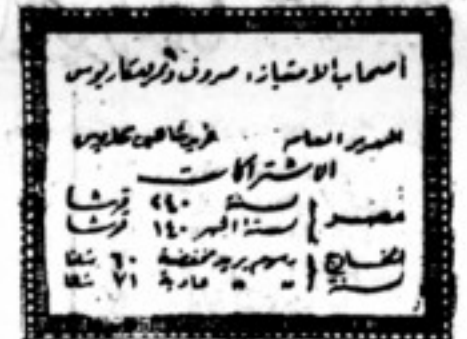 أصحاب الامتياز: صروف ونمر ومكاريوس
المدير العام
الاشتراكات
مصر { سنة ٢٤٠ قرشا
ستة اشهر ١٤٠ قرشا
الخارج { برسوم بريد مخفضة ٦٠ شلنا
سنة " " عادية ٧١ شلنا